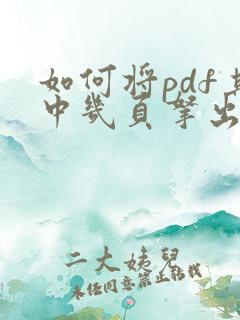 如何将pdf
中几页拿出
二大姨兒
未经同意禁止转载